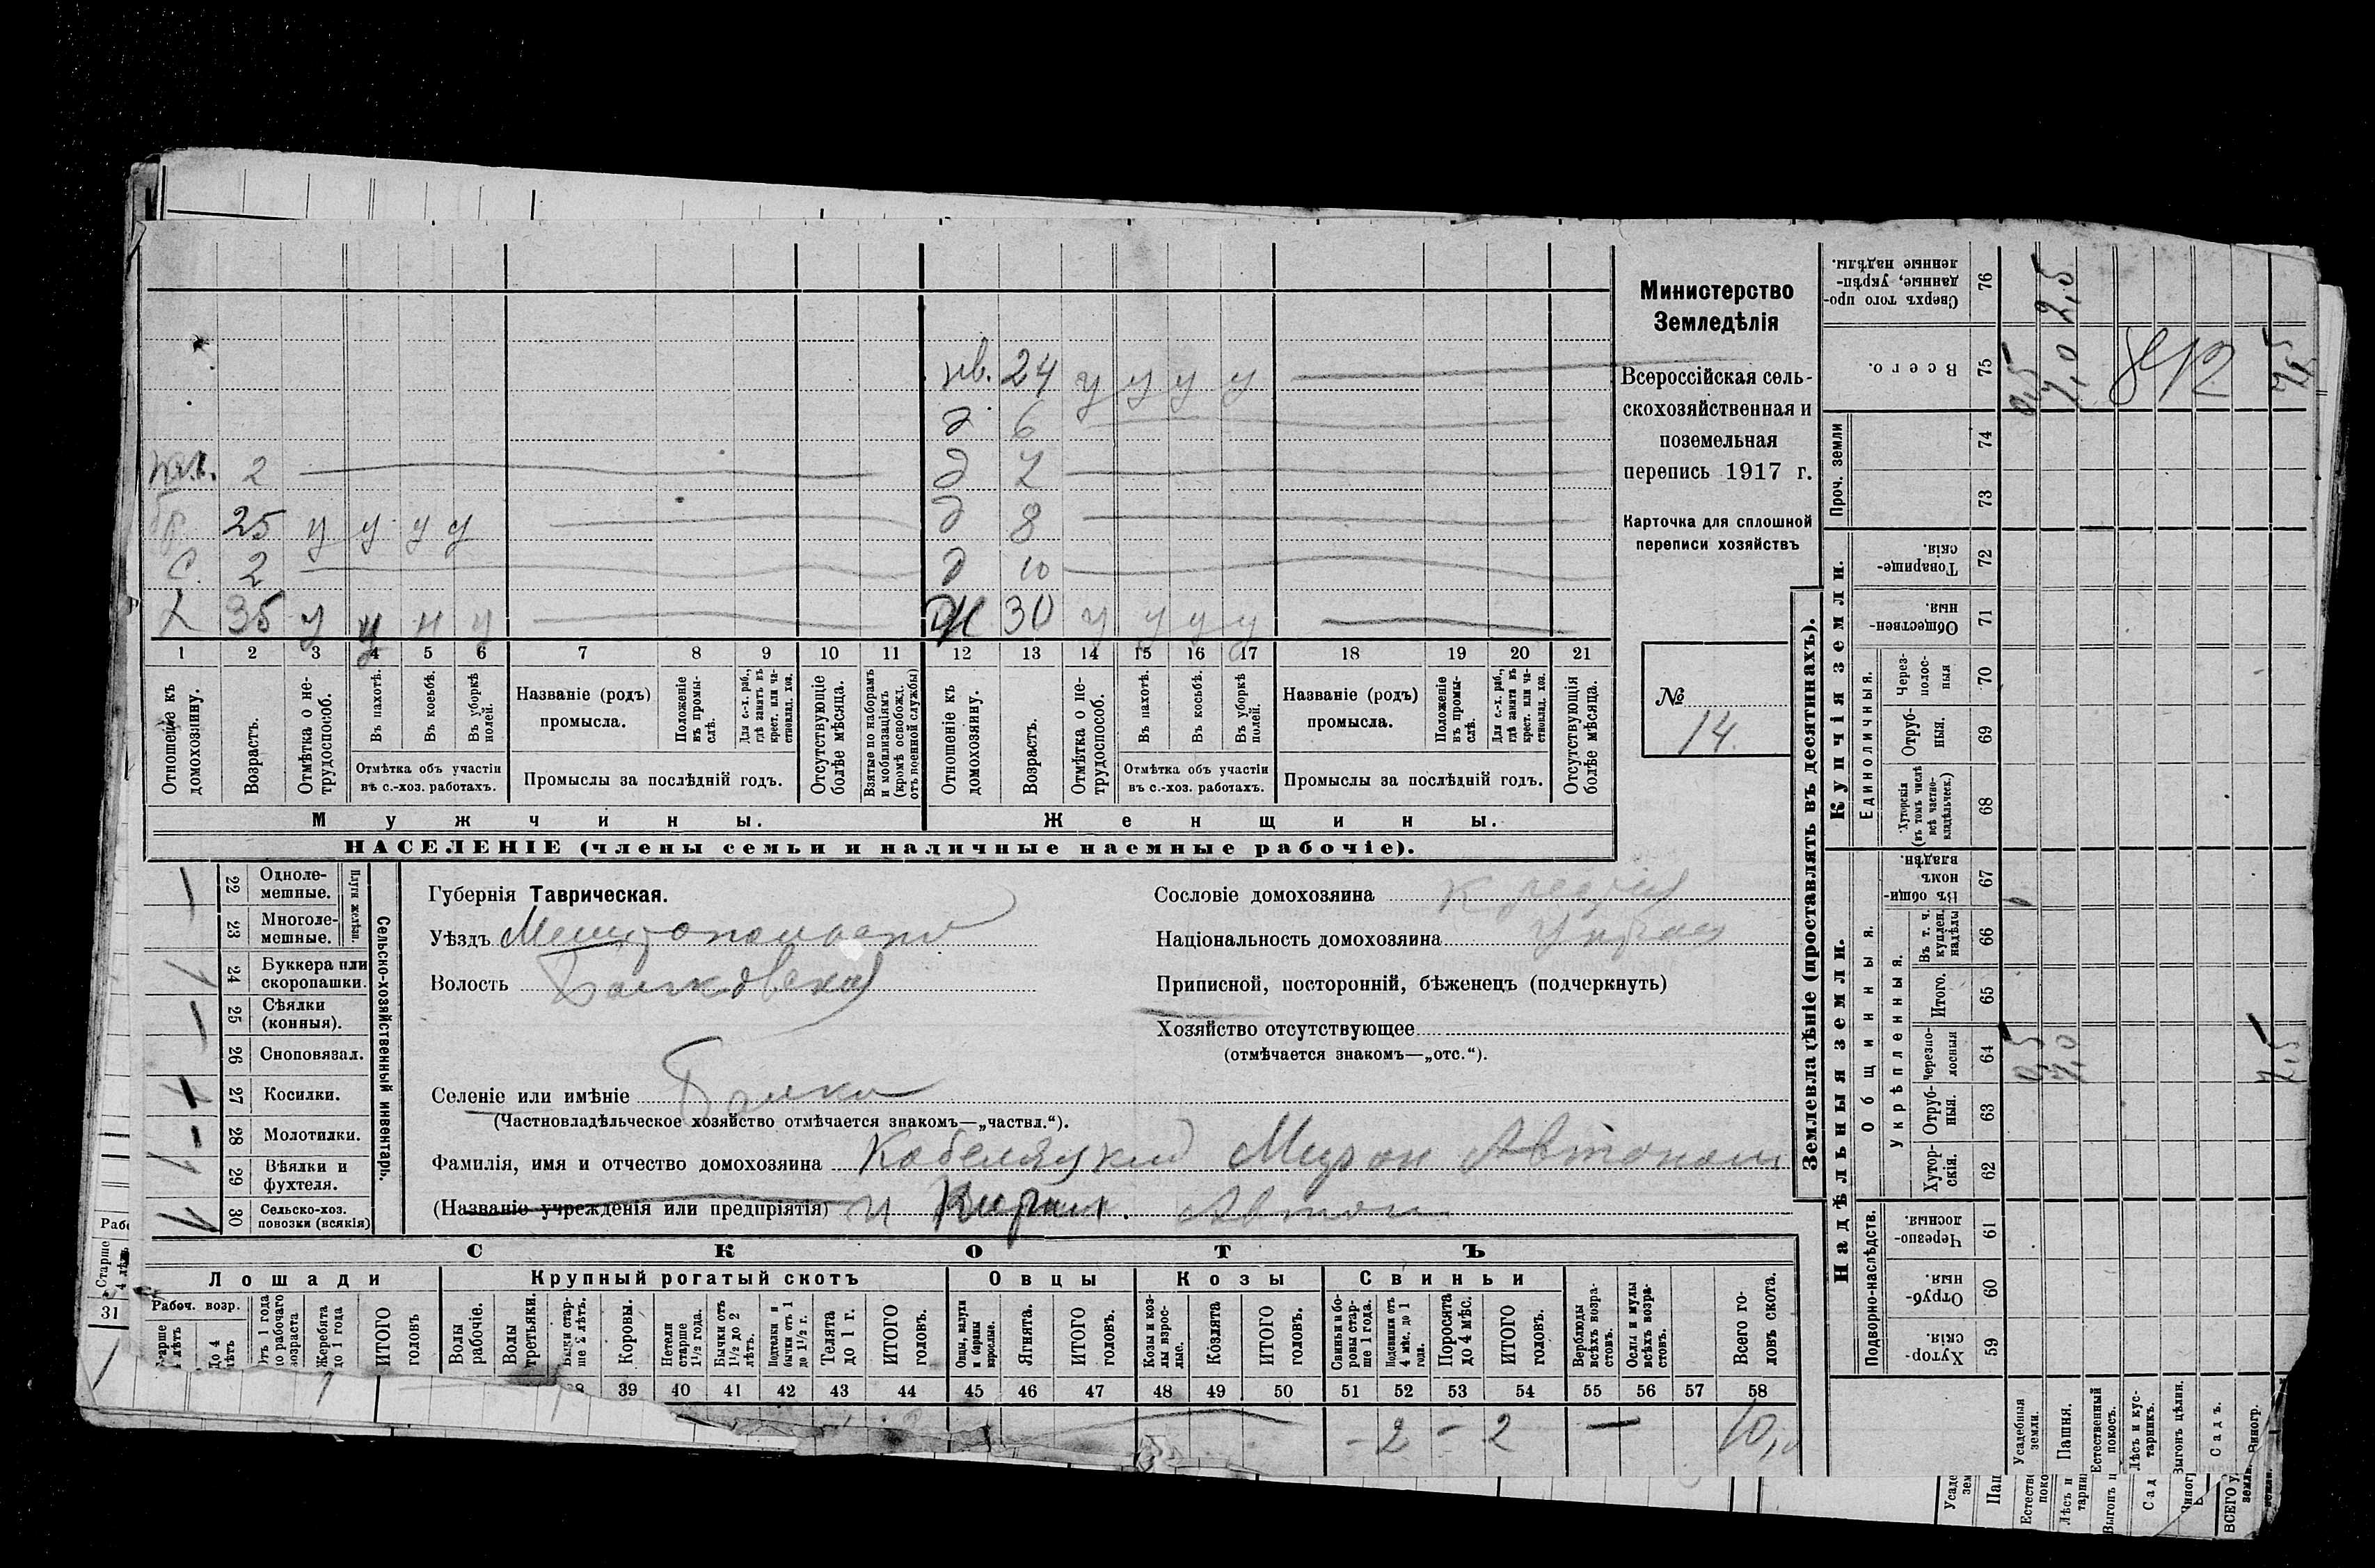 нв. 24 у у у у
д 6
д 7
пл. 2
д 8
бр. 25 у у у у
д 10
с. 2
ж 30 у у у у
х 35 у у н у
1 2 3 4 5 6 7 8 9 10 11 12 13 14 15 16 17 18 19 20 21
Отношеніе къ домохозяину.
Возрастъ.
Отмѣтка о нетрудоспособ.
Въ пахотѣ.
Въ косьбѣ.
Въ уборкѣ полей.
Отмѣтка объ участіи въ с.-хоз. работахъ.
Названіе (родъ) промысла.
Положеніе въ промыслѣ.
Для с.-х. раб., гдѣ занятъ въ крест. или частновлад. хоз.
Промыслы за послѣдній годъ.
Отсутствующіе болѣе мѣсяца.
Взятые по наборамъ и мобилизаціямъ (кромѣ освобожд. отъ военной службы)
Отношеніе къ домохозяину.
Возрастъ.
Отмѣтка о нетрудоспособ.
Въ пахотѣ.
Въ косьбѣ.
Въ уборкѣ полей.
Отмѣтка объ участіи въ с.-хоз. работахъ.
Названіе (родъ) промысла.
Положеніе въ промыслѣ.
Для с.-х. раб., гдѣ занята въ крест. или частновлад. хоз.
Промыслы за послѣдній годъ.
Отсутствующія болѣе мѣсяца.
Мужчины.
Женщины.
НАСЕЛЕНІЕ (члены семьи и наличные наемные рабочіе).
Министерство
Земледѣлія
Всероссійская сель-
скохозяйственная и
поземельная
перепись 1917 г.
Карточка для сплошной
переписи хозяйствъ
№
14.
22 Однолемешные.
23 Многолемешные.
Плуги желѣзн.
24 Буккера или скоропашки.
25 Сѣялки (конныя).
26 Сноповязал.
27 Косилки.
28 Молотилки.
29 Вѣялки и фухтеля.
30 Сельско-хоз. повозки (всякія)
Сельско-хозяйственный инвентарь.
Губернія Таврическая.
Уѣздъ Мелитопольскій
Волость Балковская
Селеніе или имѣніе Балки
(Частновладѣльческое хозяйство отмѣчается знакомъ—„частвл.“).
Фамилія, имя и отчество домохозяина Кобеляцкий Мирон Автоном
(Названіе учрежденія или предпріятія) и Кирил. Автон
Сословіе домохозяина
Національность домохозяина
Приписной, посторонній, бѣженецъ (подчеркнуть)
Хозяйство отсутствующее
(отмѣчается знакомъ—„отс.“).
СКОТЪ
Лошади
Рабоч. возр.
До 4 лѣтъ
Жеребята до 1 года
ИТОГО головъ
Крупный рогатый скотъ
Волы рабочіе.
Волы третьяки.
Коровы.
Нетели старше 1½ года.
Бычки отъ 1½ до 2 лѣтъ.
Подтелки и бычки отъ 1 до 1½ г.
Телята до 1 г.
ИТОГО головъ.
Овцы
Овцы, валухи и бараны взрослые.
Ягнята.
ИТОГО головъ.
Козы
Козы и козлы взрослые.
Козлята
ИТОГО головъ.
Свиньи
Свиньи и боровы старше 1 года.
Подсвинки отъ 4 мѣс. до 1 года.
Поросята до 4 мѣс.
ИТОГО головъ.
Верблюды всѣхъ возрастовъ.
Ослы и мулы всѣхъ возрастовъ.
Всего головъ скота.
39 40 41 42 43 44 45 46 47 48 49 50 51 52 53 54 55 56 57 58
- 2 - 2 — 10
31
Землевладѣніе (проставлять въ десятинахъ).
Надѣльныя земли.
Купчія земли.
Подворно-наслѣдств.
Хуторскія. 59
Отрубныя. 60
Черезполосныя. 61
Общинныя.
Укрѣпленныя.
Хуторскія. 62
Отрубныя. 63
Черезполосныя 64
Итого. 65
Въ т. ч. куплен. надѣлы 66
Въ общинномъ владѣн. 67
Единоличныя.
Хуторскія (въ томъ числѣ всѣ частновладѣльческ.) 68
Отрубныя. 69
Черезполосныя 70
Общественныя. 71
Товарищескія. 72
Проч. земли
73
74
Всего. 75
Сверхъ того проданные, укрѣпленные надѣлы. 76
Усадебная земли.
Пашня.
Естественный покосъ.
Лѣсъ и кустарникъ.
Выгонъ цѣлин.
Садъ.
Виногр.
0,5
7,0
7,5
0,5
7,0 2,5
812
7,5